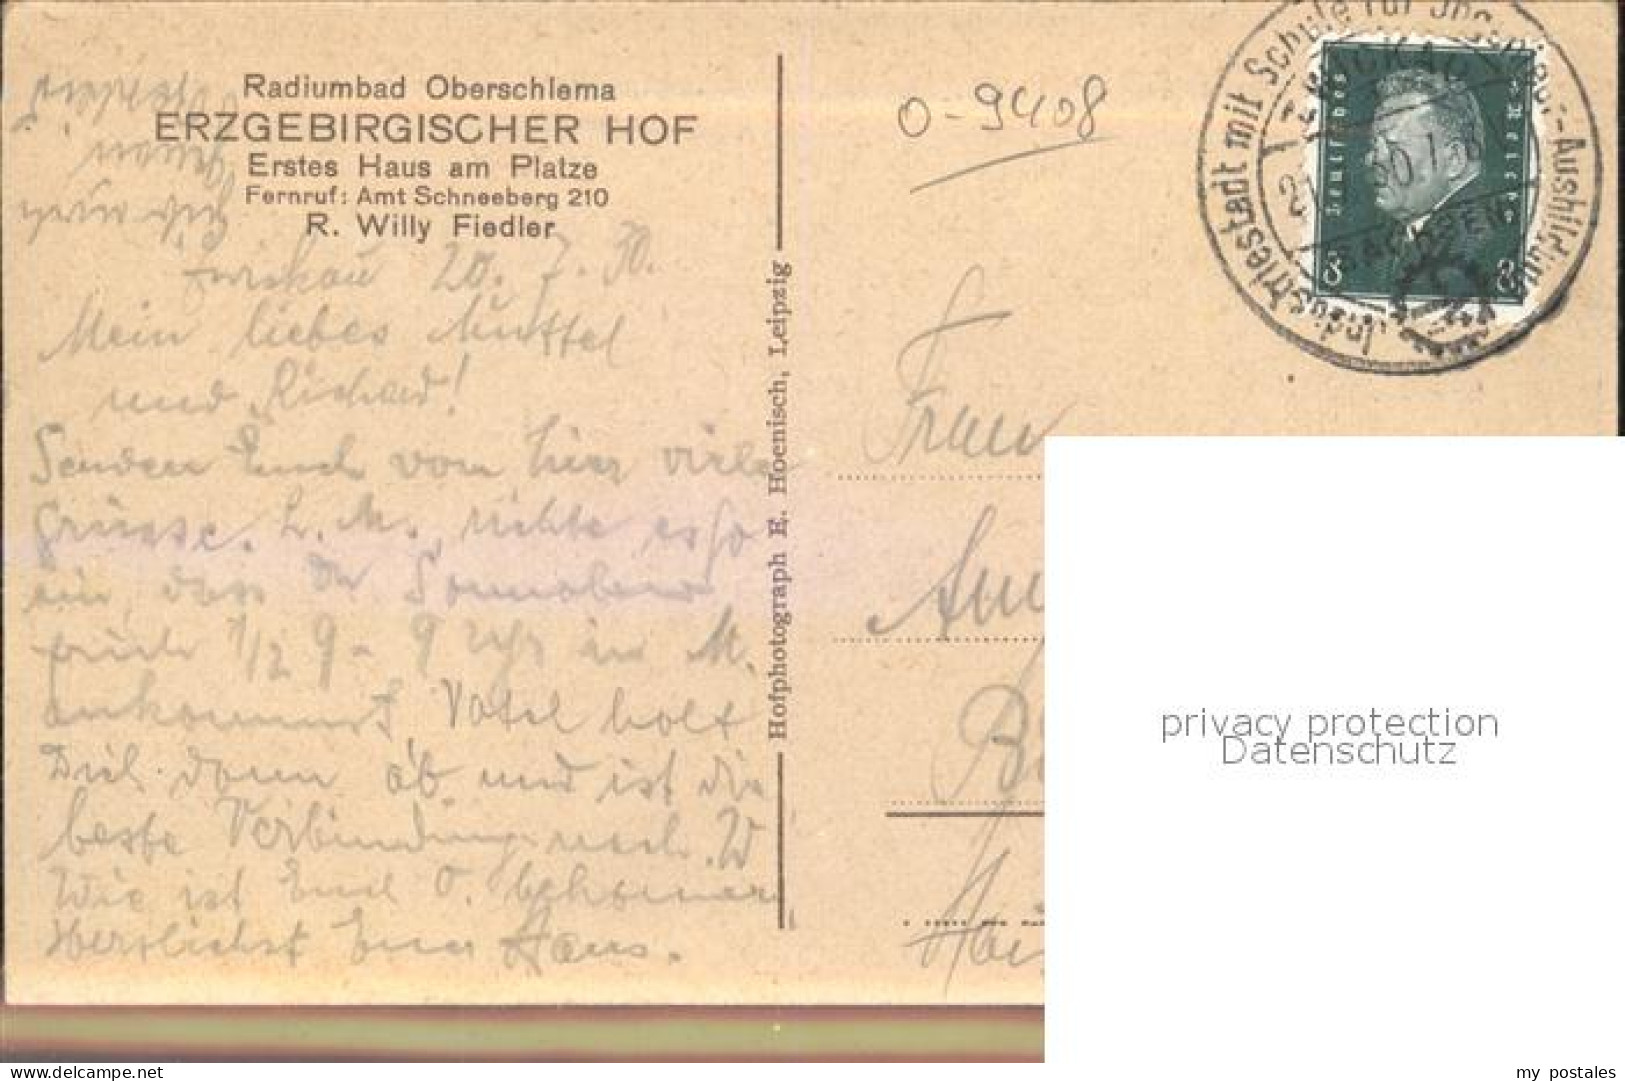 Radiumbad Oberschlema
ERZGEBIRGISCHER HOF
Erstes Haus am Platze
Fernruf: Amt Schneeberg 210
R. Willy Fiedler
Zwickau 20. 7. 30.
Mein liebes Muttel
und Richard!
Senden Euch vom hier viele
Grüsse. L. M. richte es so
ein, dass Du Sonnabend
früh 1/2 9 - 9 Uhr in M.
ankommst, Vatel holt
Dich dann ab und ist die
beste Verbindung nach W
Wie ist Emil O.
Herzlichst Euer Hans.
Hofphotograph E. Hoenisch, Leipzig
0-9408
Industriestadt mit Schule für Ingenieur-Ausbildung
ZWICKAU
SACHSEN
8
8
Frau
privacy protection
Datenschutz
www.ansichtskartenversand.com
my postales